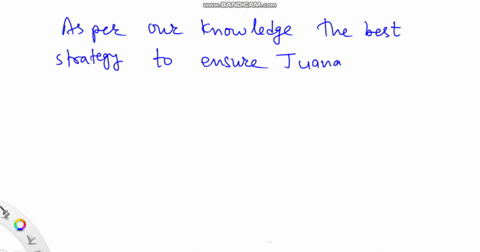 www.BANDICAM.com
As per our knowledge the best
strategy to ensure Juana